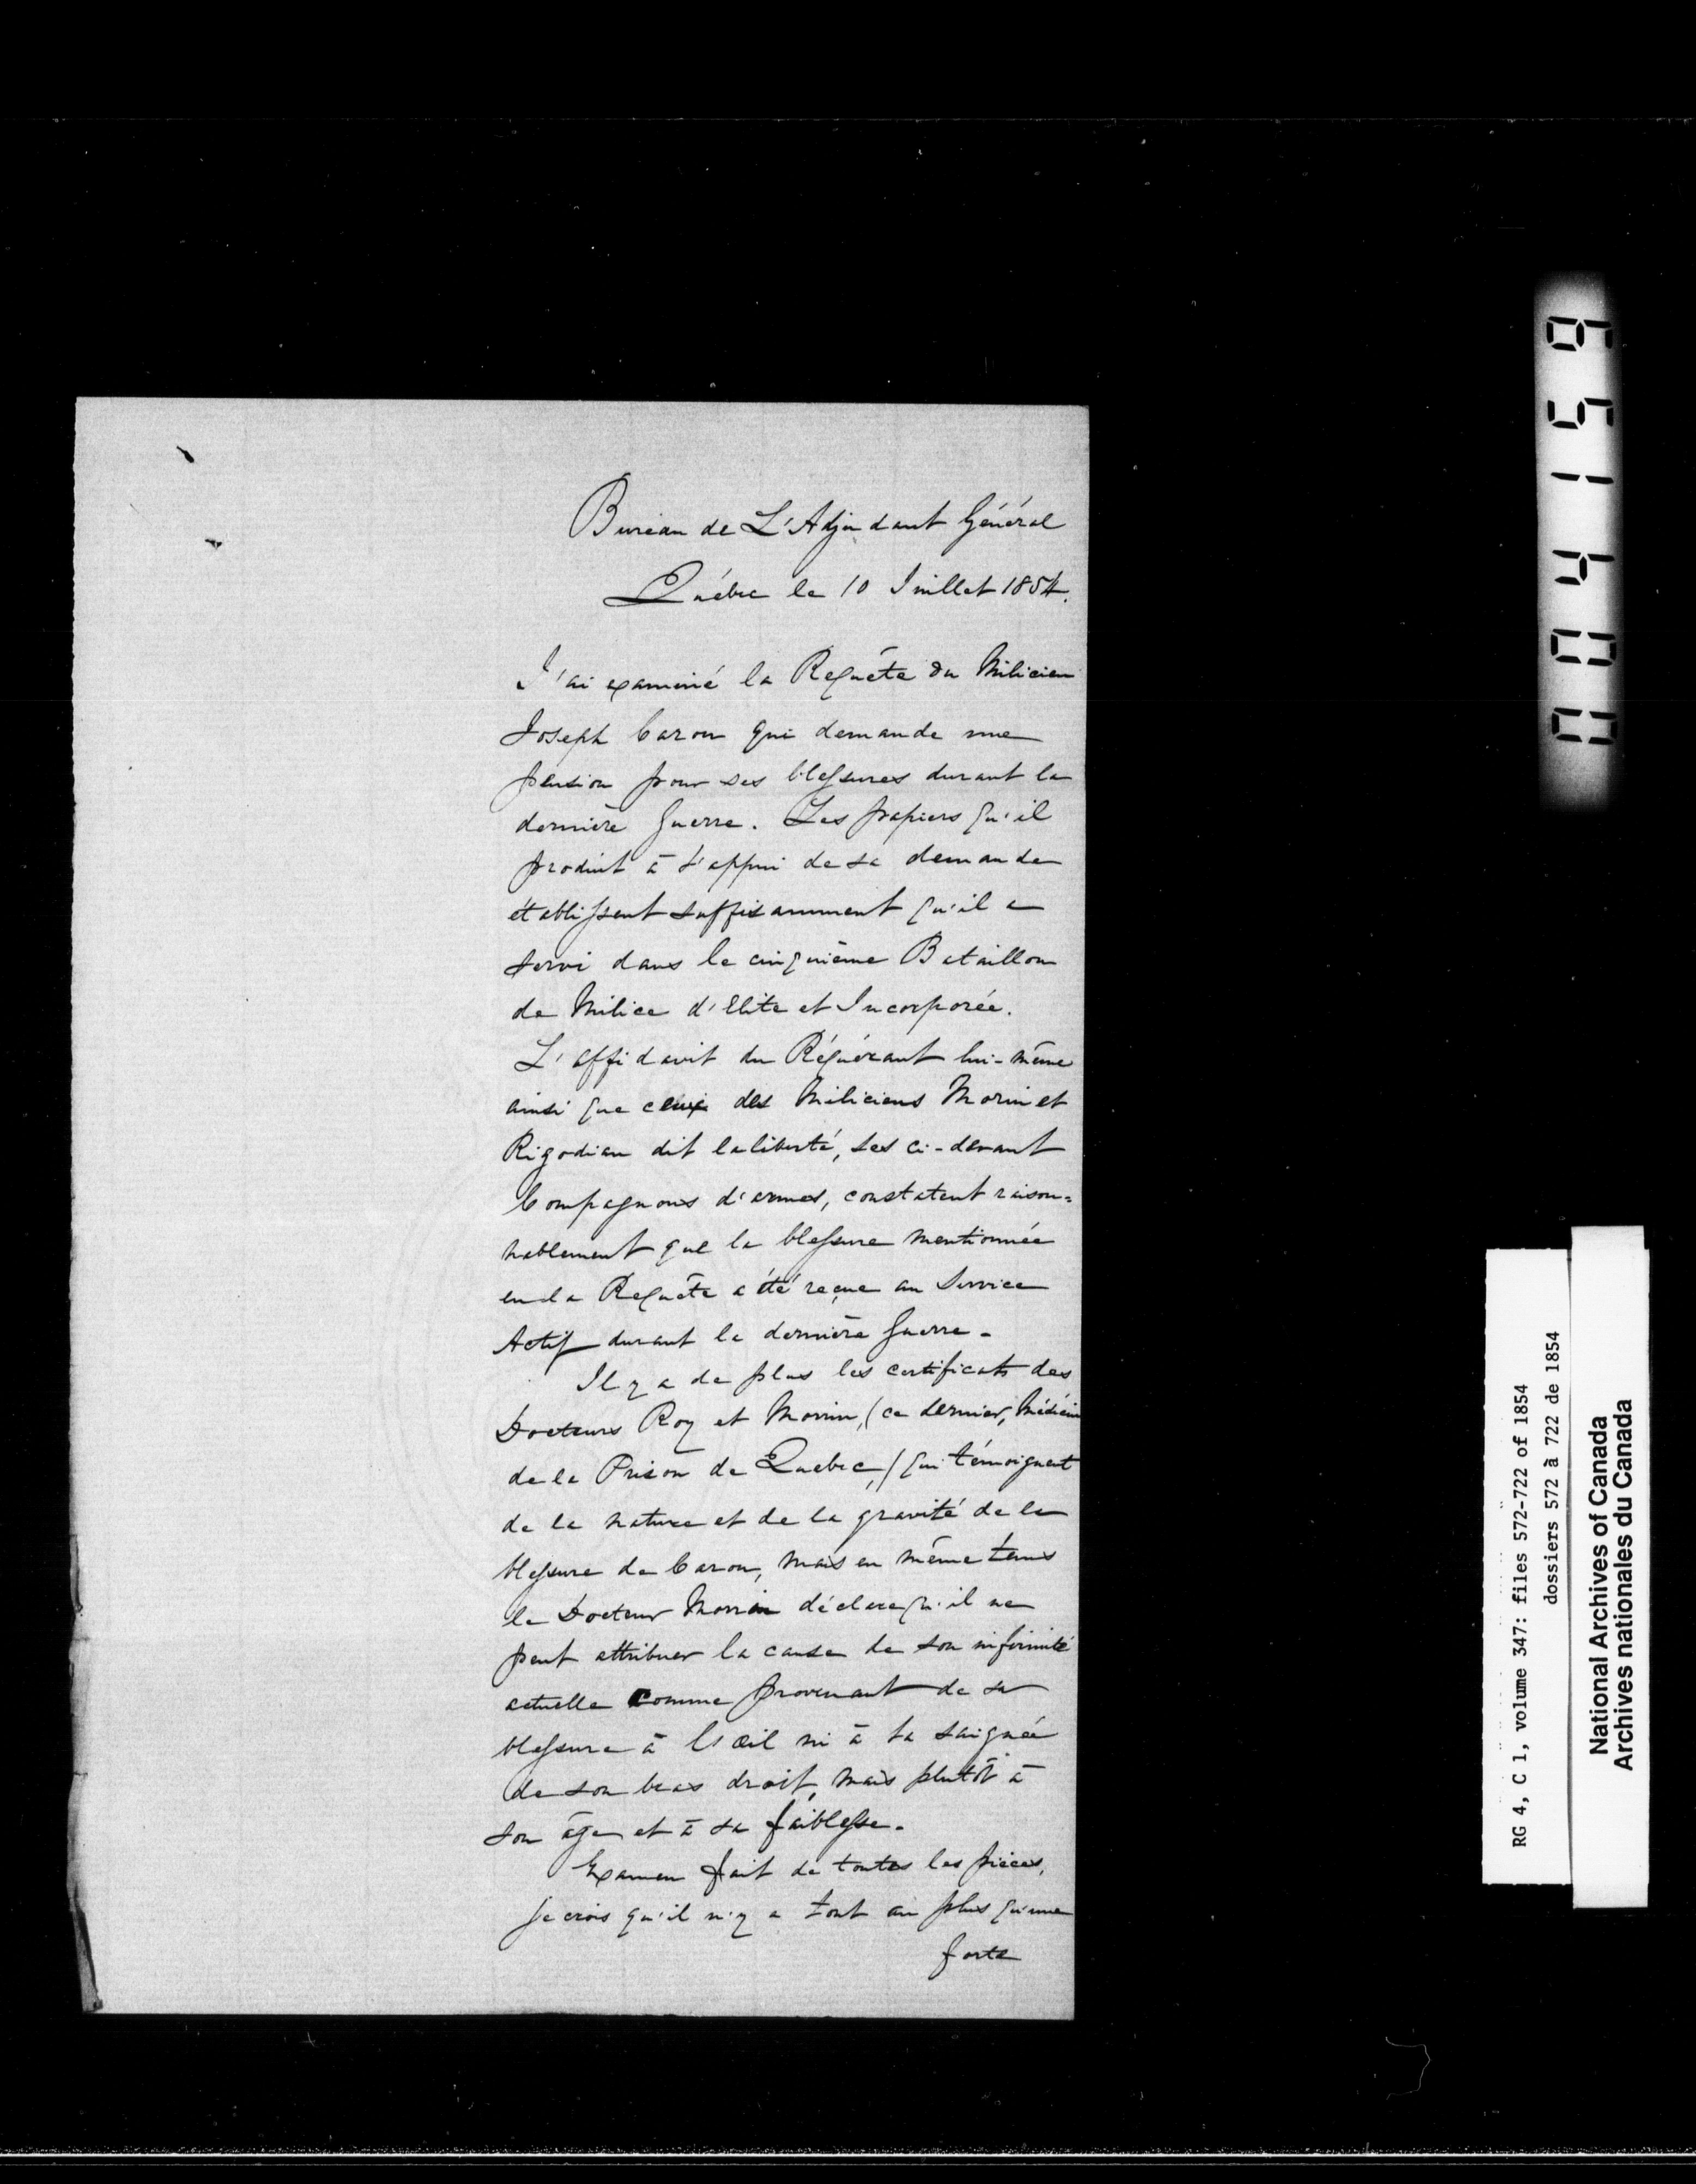 Bureau de L'Adjudant Général
Québec le 10 Juillet 1854.
J'ai examiné la Requête du Milicien
Joseph Caron qui demande une
pension pour ses blessures durant la
dernière Guerre. Les papiers qu'il
produit à l'appui de sa demande
établissent suffisamment qu'il a
servi dans le cinquième Bataillon
de Milice d'Elite et Incorporée.
L'affidavit du Réquérant lui-même
ainsi que ceux des Miliciens Morin et
Rigodiau dit laliberté, ses ci-devant
Compagnons d'armes, constatent raison=
nablement que la blessure mentionnée
en la Requête a été reçue au Service
Actif durant la dernière Guerre.
Il y a de plus les certificats des
Docteurs Roy et Morrin, (ce dernier, Médécin
de la Prison de Quebec,) qui témoignent
de la nature et de la gravité de la
blessure de Caron, mais en même tems
le Docteur Morrin déclare qu'il ne
peut attribuer la cause de son infirmité
actuelle comme provenant de sa
blessure à l'œil ni à la saignée
de son bras droit, mais plutôt à
son âge et à sa faiblesse.
Examen fait de toutes les pièces,
je crois qu'il n'y a tout au plus qu'une
forte
RG 4, C 1, volume 347: files 572-722 of 1854
dossiers 572 à 722 de 1854
National Archives of Canada
Archives nationales du Canada